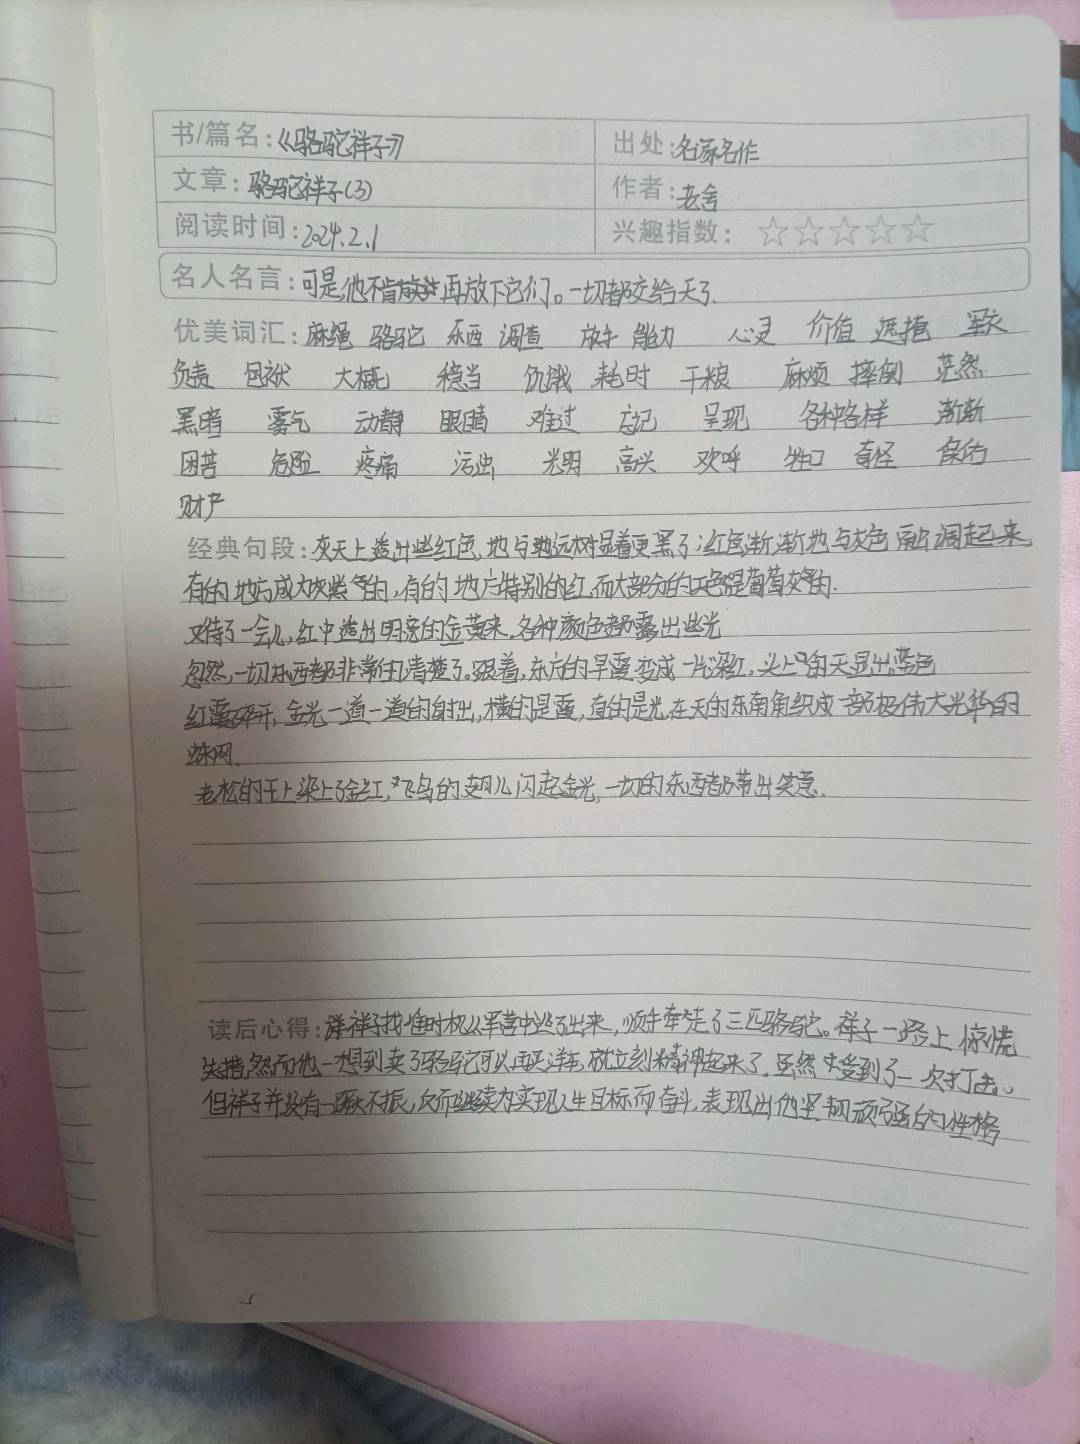 书/篇名：《骆驼祥子》 出处：名家名作
文章：骆驼祥子(3) 作者：老舍
阅读时间：2024.2.1 兴趣指数：☆☆☆☆☆
名人名言：可是，他不肯再放下它们。一切都交给天了.
优美词汇：麻绳 骆驼 东西 调查 放手 能力 心灵 价值 遮掩 军衣
负责 包袱 大概 稳当 饥饿 耗时 干粮 麻烦 摔倒 茫然
黑暗 雾气 动静 眼睛 难过 忘记 呈现 各种各样 渐渐
困苦 危险 疼痛 污浊 光明 高兴 欢呼 牲口 奇怪 保的
财产
经典句段：灰天上透出些红色，地与远树显着更黑了；红色渐渐地与灰色融调起来
有的地方成为灰紫的，有的地方特别的红，而大部分的天色是葡萄灰的.
又待了一会儿，红中透出明亮的金黄来，各种颜色都露出些光
忽然，一切东西都非常的清楚了。跟着，东方的早霞变成一片深红，头上的天显出蓝色
红霞碎开，金光一道一道的射出，横的是霞，直的是光，在天的东南角织成一部极伟大光华的
蛛网.
老松的干上染上了金红，飞鸟的翅儿闪起金光，一切的东西都带出笑意.
读后心得：祥子找准时机从军营中逃了出来，顺手牵走了三匹骆驼。祥子一路上惊慌
失措，然而他一想到卖了骆驼可以再买洋车，就立刻精神起来了.虽然受到了一次打击。
但祥子并没有一蹶不振，反而继续为实现人生目标而奋斗，表现出他坚韧顽强的性格